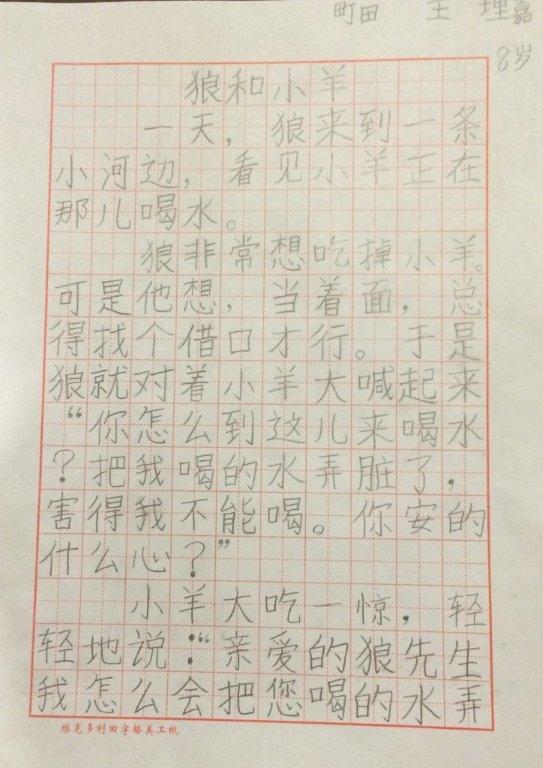 町田 王 理嘉
8岁
狼和小羊
一天，狼来到一条
小河边，看见小羊正在
那儿喝水。
狼非常想吃掉小羊。
可是他想，当着面，总
得找个借口才行。于是
狼就对着小羊大喊起来
“你怎么到这儿来喝水
？把我喝的水弄脏了，
害得我不能喝。你安的
什么心？”
小羊大吃一惊，轻
轻地说：“亲爱的狼先生
我怎么会把您喝的水弄
维克多利田字格美工纸